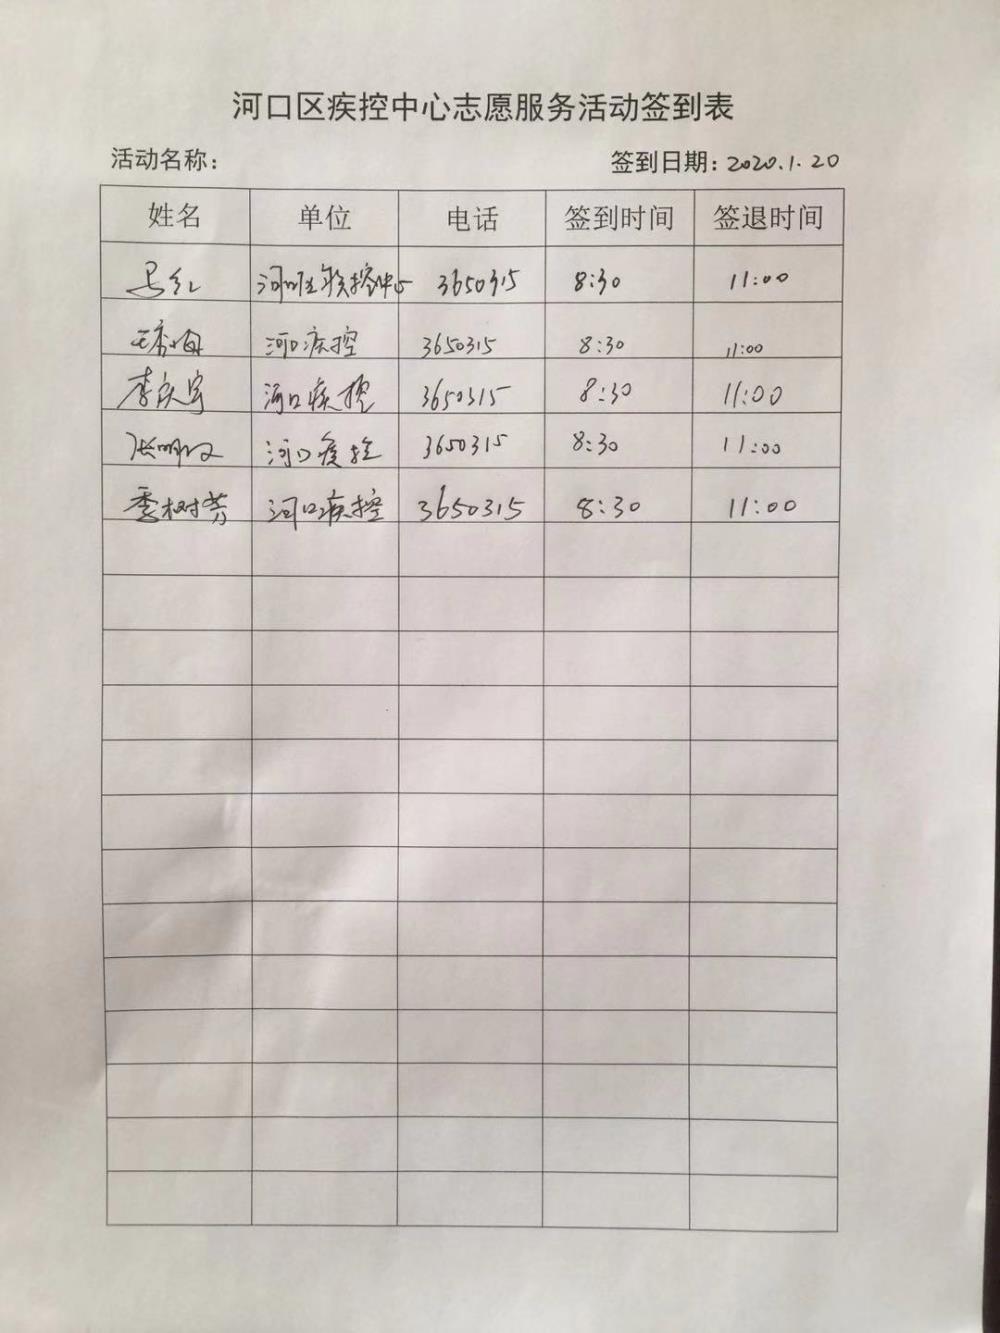 河口区疾控中心志愿服务活动签到表
活动名称: 签到日期: 2020.1.20
姓名 单位 电话 签到时间 签退时间
马红 3650315 8:30 11:00
河口疾控 3650315 8:30 11:00
李庆宇 河口疾控 3650315 8:30 11:00
河口疾控 3650315 8:30 11:00
季树芳 河口疾控 3650315 8:30 11:00